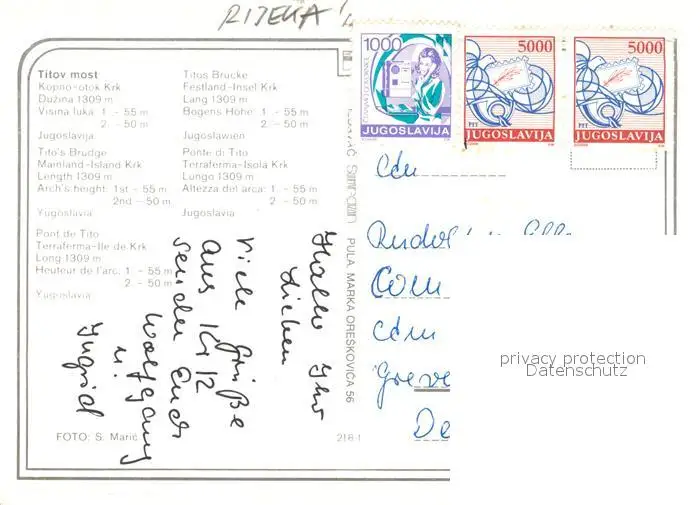 RIJEKA
1000
JUGOSLAVIJA
5000
PTT
JUGOSLAVIJA
5000
PTT
JUGOSLAVIJA
Titov most
Kopno-otok Krk
Dužina 1309 m
Visina luka: 1. - 55 m
2. - 50 m
Jugoslavija
Titos Brucke
Festland-Insel Krk
Lang 1309 m
Bogens Hohe: 1. - 55 m
2. - 50 m
Jugoslawien
Tito's Brudge
Mainland-Island Krk
Length 1309 m
Arch's height: 1st - 55 m
2nd - 50 m
Yugoslavia
Ponte di Tito
Terraferma-Isola Krk
Lungo 1309 m
Altezza del arca: 1. - 55 m
2. - 50 m
Jugoslavia
Pont de Tito
Terraferma-Ile de Krk
Long 1309 m
Heuteur de l'arc: 1. - 55 m
2. - 50 m
Yugoslavia
Hallo Ihr
Lieben
Viele Grüße
aus Krk
senden Euch
Wolfgang
u.
Ingrid
FOTO: S. Marić
PULA, MARKA OREŠKOVIĆA 56
privacy protection
Datenschutz